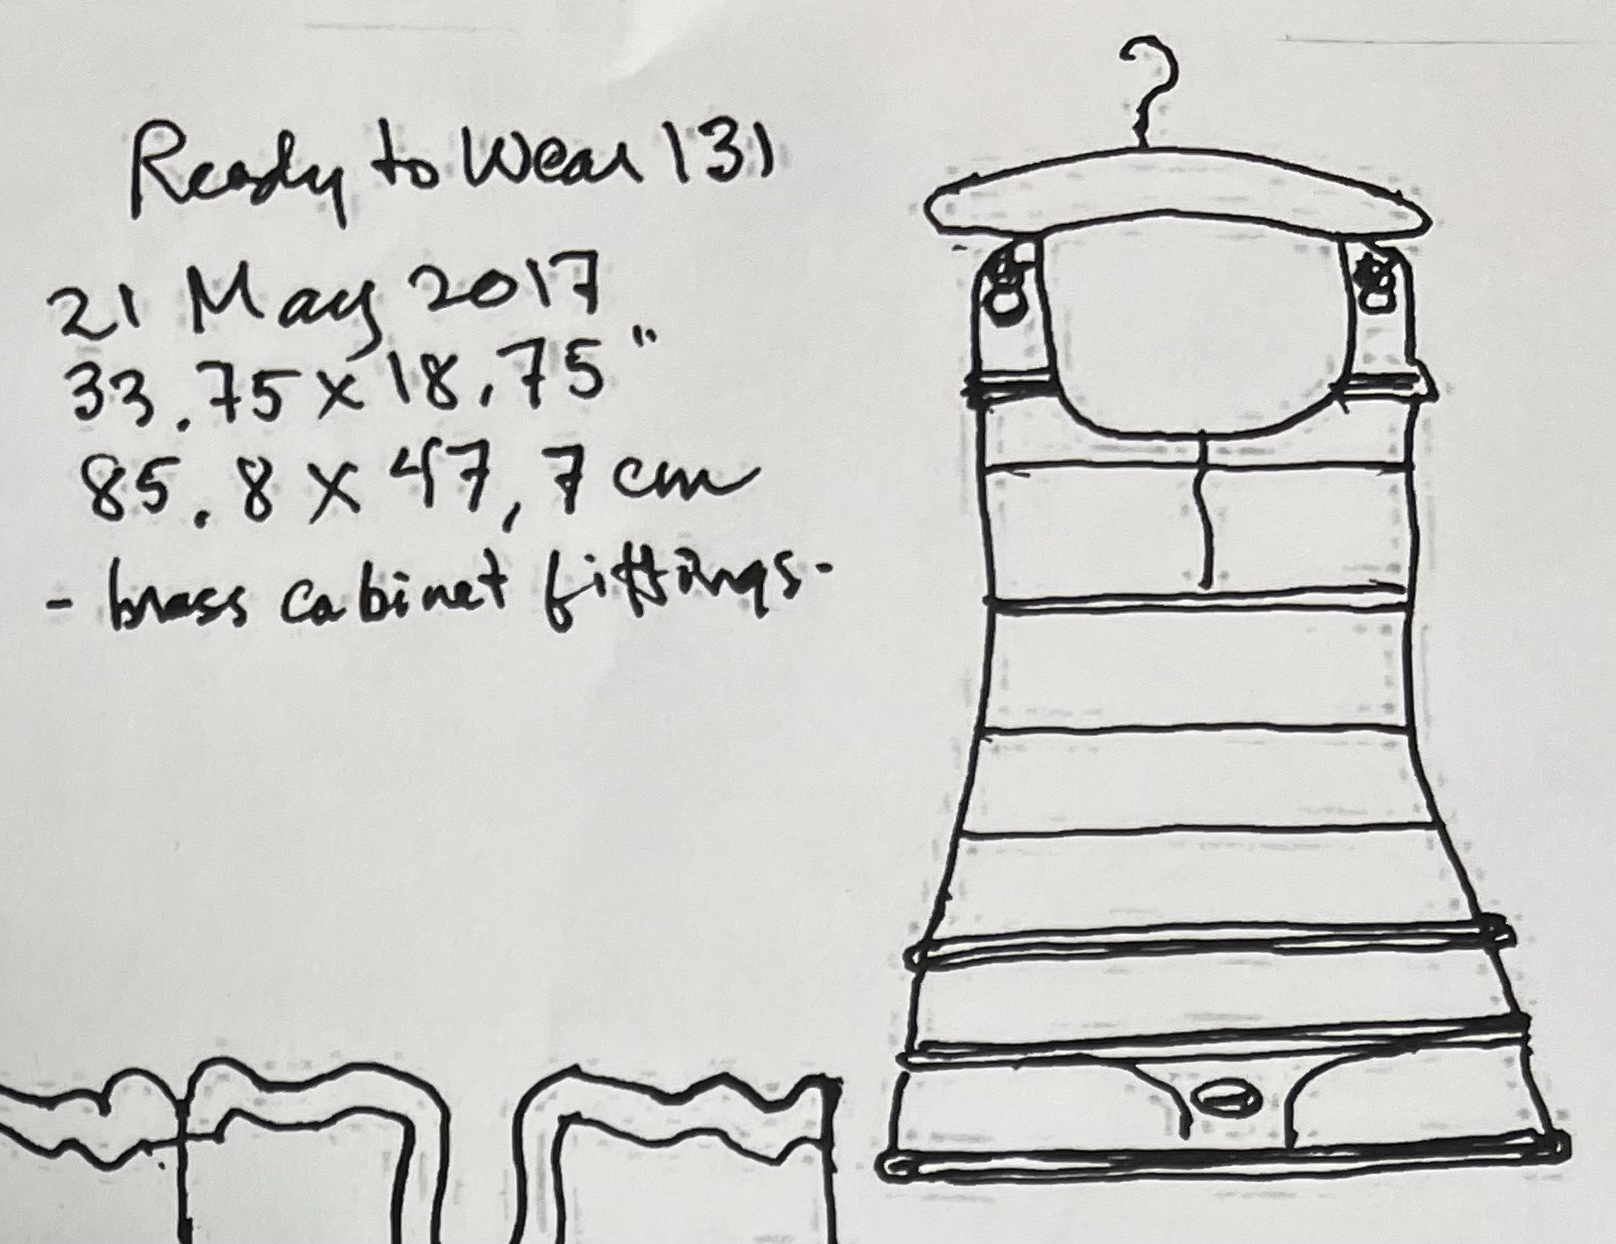 Ready to Wear 131
21 May 2017
33.75 x 18.75"
85.8 x 47,7 cm
- brass cabinet fittings -